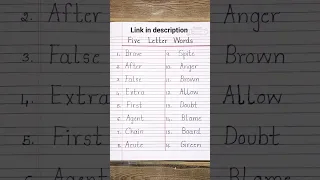 Link in description
Five Letter Words
1. Brave 9. Spite
2. After 10. Anger
3. False 11. Brown
4. Extra 12. Allow
5. First 13. Doubt
6. Agent 14. Blame
7. Chain 15. Board
8. Acute 16. Green
2. After
3. False
4. Extra
5. First
6. Agent
Anger
Brown
Allow
Doubt
Blame